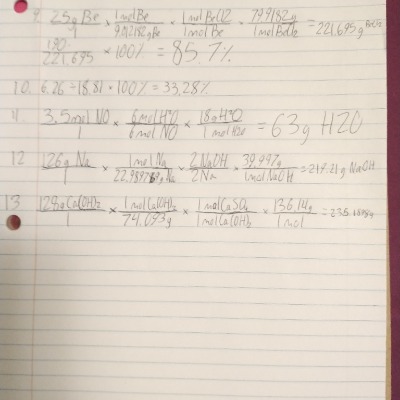 9. 25g Be/1 × 1molBe/9.012182gBe × 1molBeCl2/1molBe × 79.9182g/1molBeCl2 = 221.695g BeCl2
190/221.695 × 100% = 85.7%
10. 6.26 ÷ 18.81 × 100% = 33.28%
11. 3.5mol NO/1 × 6molH2O/6molNO × 18gH2O/1molH2O = 63g H2O
12 126g Na/1 × 1molNa/22.98976g Na × 2NaOH/2Na × 39.997g/1molNaOH = 219.21g NaOH
13 129gCa(OH)2/1 × 1molCa(OH)2/74.093g × 1molCaSO4/1molCa(OH)2 × 136.14g/1mol =